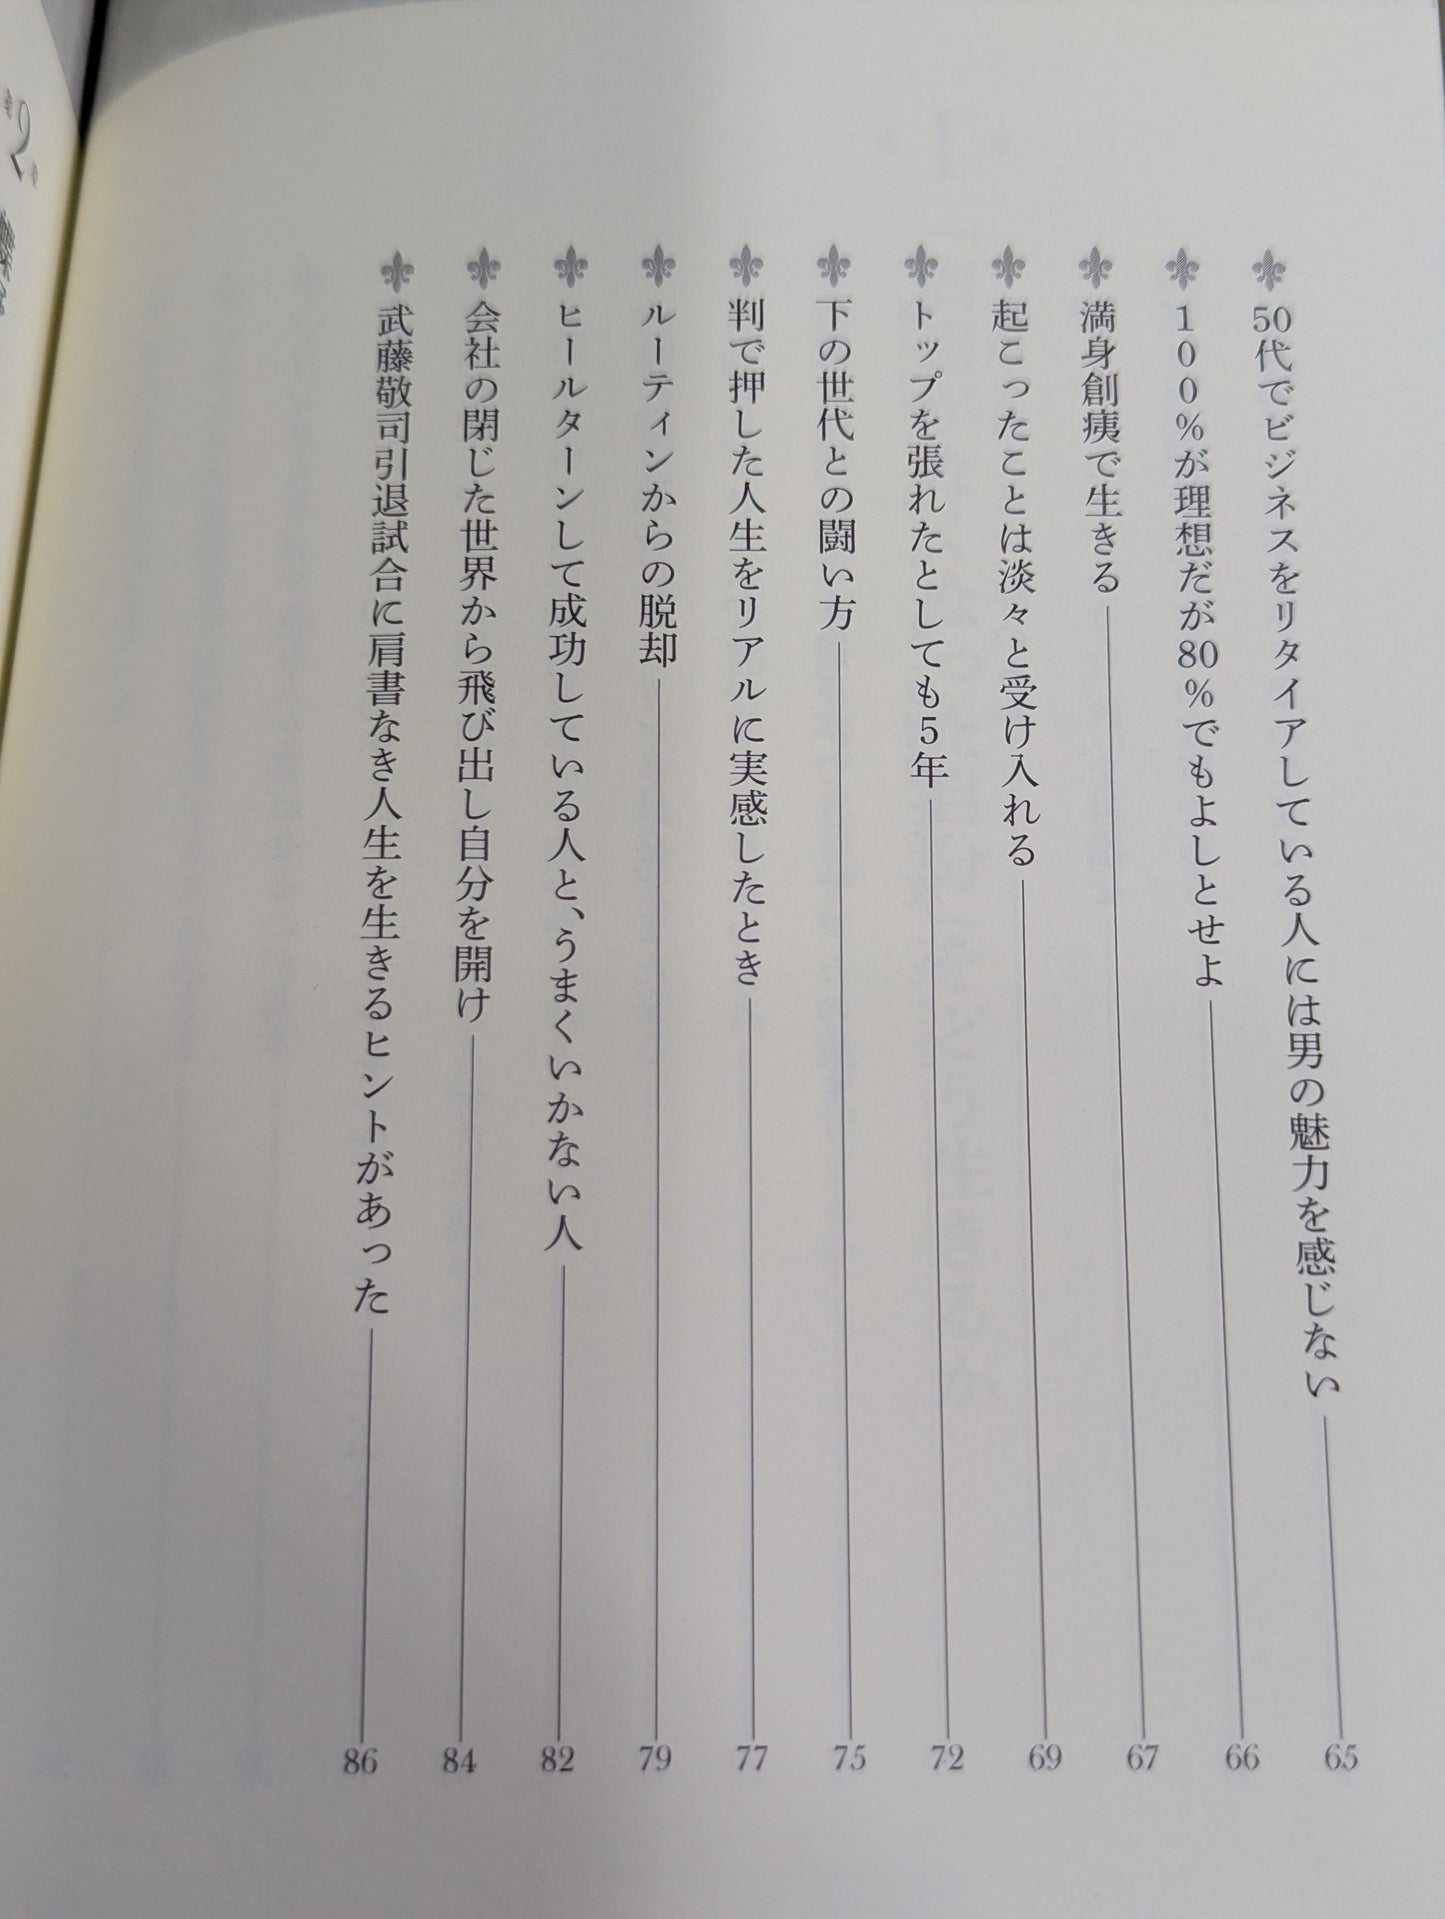 50代でビジネスをリタイアしている人には男の魅力を感じない 65
100%が理想だが80%でもよしとせよ 66
満身創痍で生きる 67
起こったことは淡々と受け入れる 69
トップを張れたとしても5年 72
下の世代との闘い方 75
判で押した人生をリアルに実感したとき 77
ルーティンからの脱却 79
ヒールターンして成功している人と、うまくいかない人 82
会社の閉じた世界から飛び出し自分を開け 84
武藤敬司引退試合に肩書なき人生を生きるヒントがあった 86
2